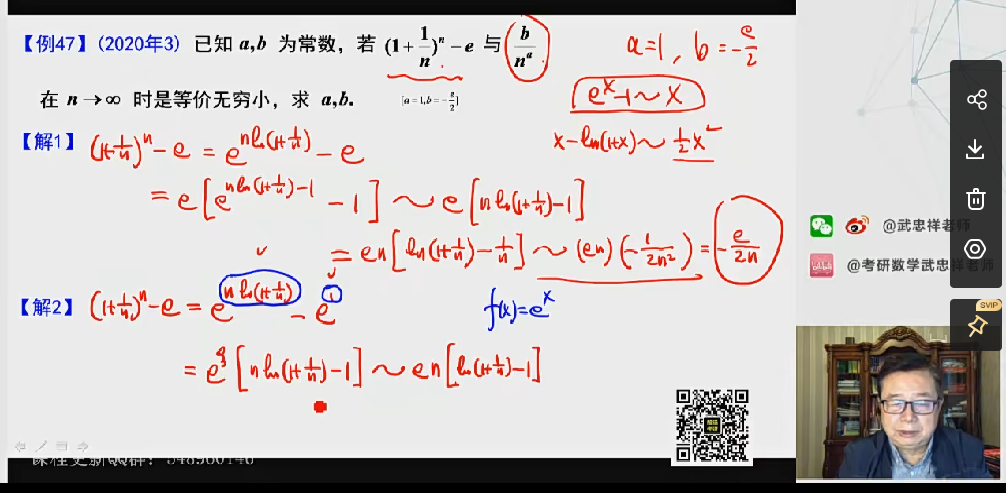 【例47】(2020年3) 已知 a,b 为常数，若 (1+1/n)^n − e 与 b/n^a
在 n→∞ 时是等价无穷小，求 a,b. [a=1,b=−e/2]
a=1, b=−e/2
e^x−1∼x
x−ln(1+x)∼1/2x^2
【解1】 (1+1/n)^n − e = e^{nln(1+1/n)} − e
= e[e^{nln(1+1/n)−1} − 1] ∼ e[nln(1+1/n)−1]
= en[ln(1+1/n)−1/n] ∼ (en)(−1/2n^2) = −e/2n
【解2】 (1+1/n)^n − e = e^{nln(1+1/n)} − e^1
f(x)=e^x
= e^ξ[nln(1+1/n)−1] ∼ en[ln(1+1/n)−1]
@武忠祥老师
@考研数学武忠祥老师
SVIP
课程更新QQ群：348900146